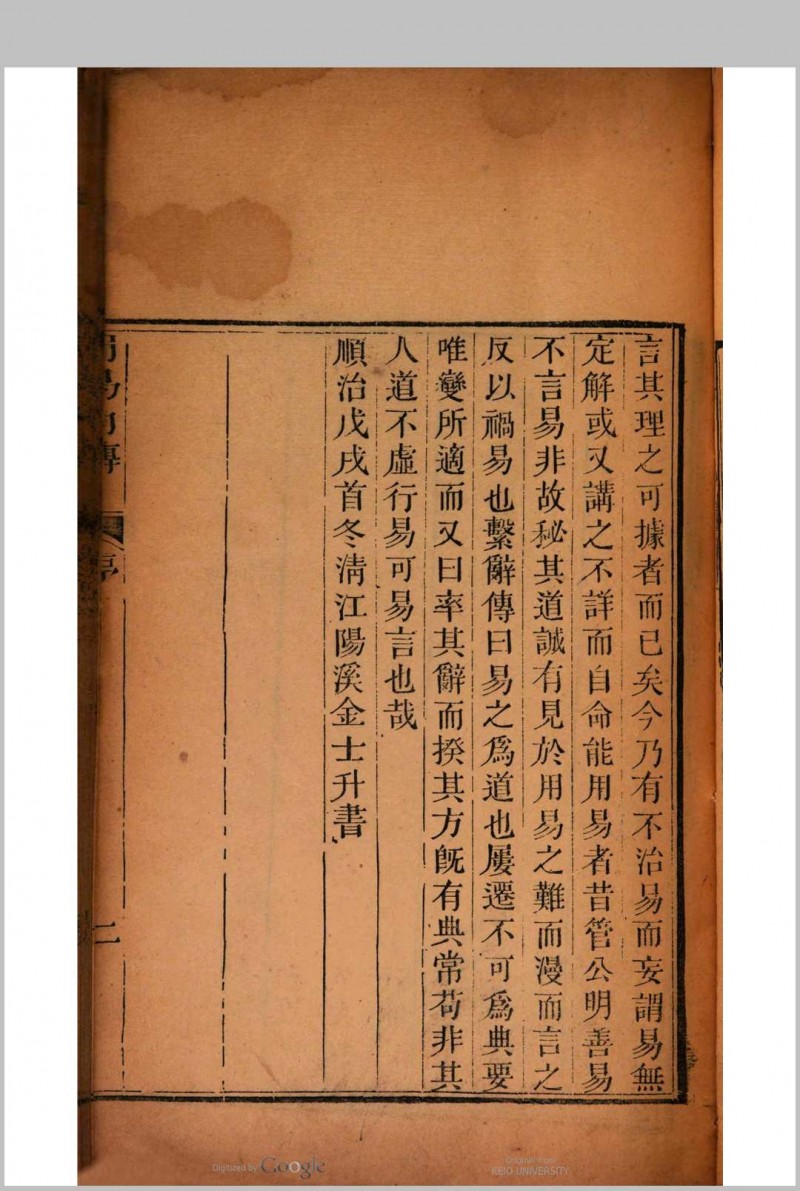 言其理之可據者而已矣今乃有不治易而妄謂易無
定解或又講之不詳而自命能用易者昔管公明善易
不言易非故秘其道誠有見於用易之難而漫而言之
反以禍易也繫辭傳曰易之爲道也屢遷不可爲典要
唯變所適而又曰率其辭而揆其方旣有典常苟非其
人道不虛行易可易言也哉
順治戊戌首冬淸江陽溪金士升書
易內傳
序
二
Digitized by Google
Original from
KEIO UNIVERSITY